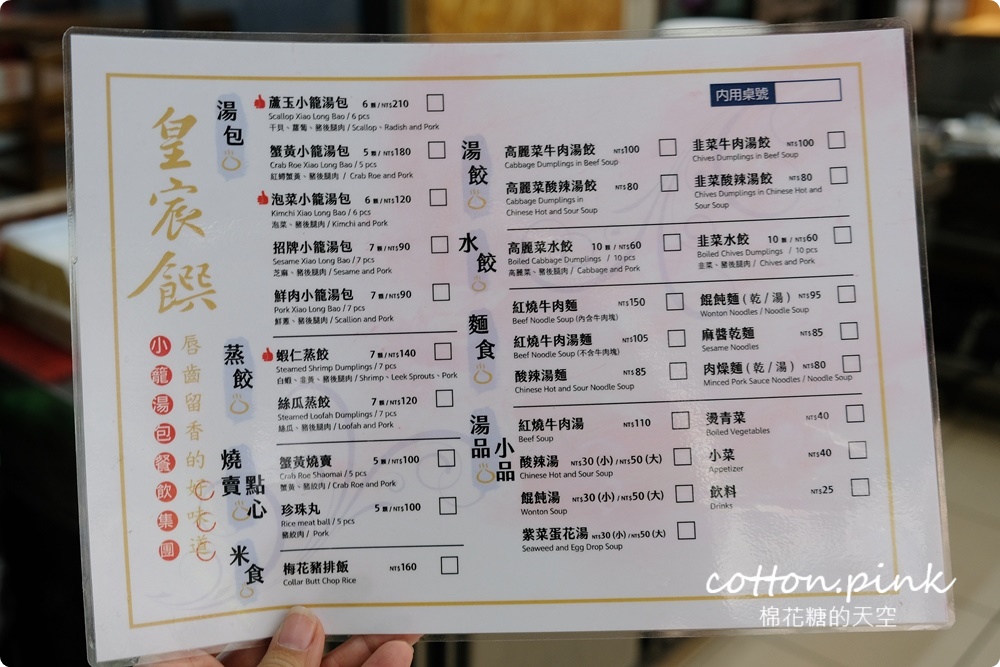 皇宸饌
小籠湯包餐飲集團
唇齒留香的好味道
內用桌號
湯包
蘆玉小籠湯包 6顆/NT$210
Scallop Xiao Long Bao / 6 pcs
干貝、蘿蔔、豬後腿肉 / Scallop、Radish and Pork
蟹黃小籠湯包 5顆/NT$180
Crab Roe Xiao Long Bao / 5 pcs
紅蟳蟹黃、豬後腿肉 / Crab Roe and Pork
泡菜小籠湯包 6顆/NT$120
Kimchi Xiao Long Bao / 6 pcs
泡菜、豬後腿肉 / Kimchi and Pork
招牌小籠湯包 7顆/NT$90
Sesame Xiao Long Bao / 7 pcs
芝麻、豬後腿肉 / Sesame and Pork
鮮肉小籠湯包 7顆/NT$90
Pork Xiao Long Bao / 7 pcs
鮮蔥、豬後腿肉 / Scallion and Pork
蒸餃
蝦仁蒸餃 7顆/NT$140
Steamed Shrimp Dumplings / 7 pcs
白蝦、韭黃、豬後腿肉 / Shrimp、Leek Sprouts、Pork
絲瓜蒸餃 7顆/NT$120
Steamed Loofah Dumplings / 7 pcs
絲瓜、豬後腿肉 / Loofah and Pork
燒賣 點心
蟹黃燒賣 5顆/NT$100
Crab Roe Shaomai / 5 pcs
蟹黃、豬絞肉 / Crab Roe and Pork
珍珠丸 5顆/NT$100
Rice meat ball / 5 pcs
豬絞肉 / Pork
米食
梅花豬排飯 NT$160
Collar Butt Chop Rice
湯餃
高麗菜牛肉湯餃 NT$100
Cabbage Dumplings in Beef Soup
高麗菜酸辣湯餃 NT$80
Cabbage Dumplings in
Chinese Hot and Sour Soup
韭菜牛肉湯餃 NT$100
Chives Dumplings in Beef Soup
韭菜酸辣湯餃 NT$80
Chives Dumplings in Chinese Hot and
Sour Soup
水餃
高麗菜水餃 10顆/NT$60
Boiled Cabbage Dumplings / 10 pcs
高麗菜、豬後腿肉 / Cabbage and Pork
韭菜水餃 10顆/NT$60
Boiled Chives Dumplings / 10 pcs
韭菜、豬後腿肉 / Chives and Pork
麵食
紅燒牛肉麵 NT$150
Beef Noodle Soup (內含牛肉塊)
紅燒牛肉湯麵 NT$105
Beef Noodle Soup (不含牛肉塊)
酸辣湯麵 NT$85
Chinese Hot and Sour Noodle Soup
餛飩麵 (乾/湯) NT$95
Wonton Noodles / Noodle Soup
麻醬乾麵 NT$85
Sesame Noodles
肉燥麵 (乾/湯) NT$80
Minced Pork Sauce Noodles / Noodle Soup
湯品 小品
紅燒牛肉湯 NT$110
Beef Soup
酸辣湯 NT$30 (小) / NT$50 (大)
Chinese Hot and Sour Soup
餛飩湯 NT$30 (小) / NT$50 (大)
Wonton Soup
紫菜蛋花湯 NT$30 (小) / NT$50 (大)
Seaweed and Egg Drop Soup
燙青菜 NT$40
Boiled Vegetables
小菜 NT$40
Appetizer
飲料 NT$25
Drinks
cotton.pink
棉花糖的天空